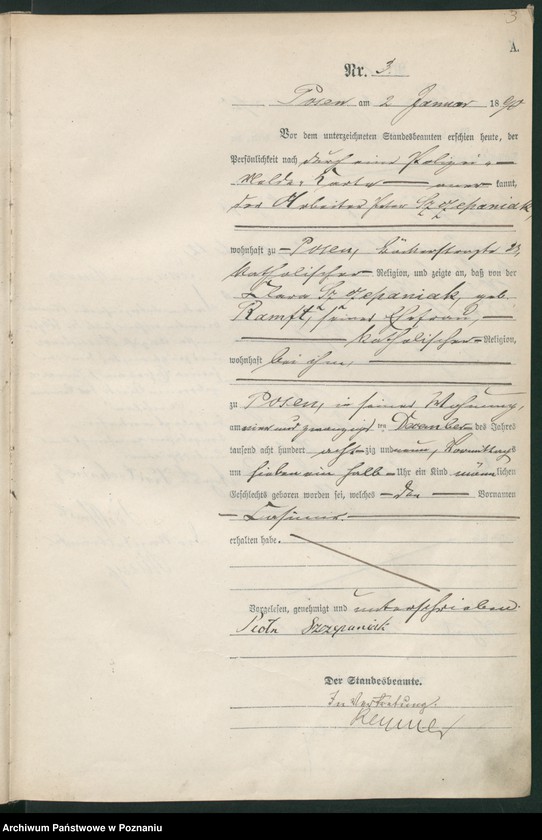 3
A.
Nr. 3.
Posen am 2 Januar 1890
Vor dem unterzeichneten Standesbeamten erschien heute, der
Persönlichkeit nach durch eine Polizei-
Melde-Karte kannt,
der Arbeiter Peter Szczepaniak,
wohnhaft zu Posen, 23,
katholischer Religion, und zeigte an, daß von der
Clara Szczepaniak, geb.
Ramft, seiner Ehefrau,
katholischer Religion,
wohnhaft bei ihm,
zu Posen, in seiner Wohnung,
am ein und zwanzigsten Dezember des Jahres
tausend acht hundert achtzig und neun, Vormittags
um sieben ein halb Uhr ein Kind männlichen
Geschlechts geboren worden sei, welches den Vornamen
Casimir
erhalten habe.
Vorgelesen, genehmigt und unterschrieben.
Piotr Szzepaniak
Der Standesbeamte.
In Vertretung.
Archiwum Państwowe w Poznaniu